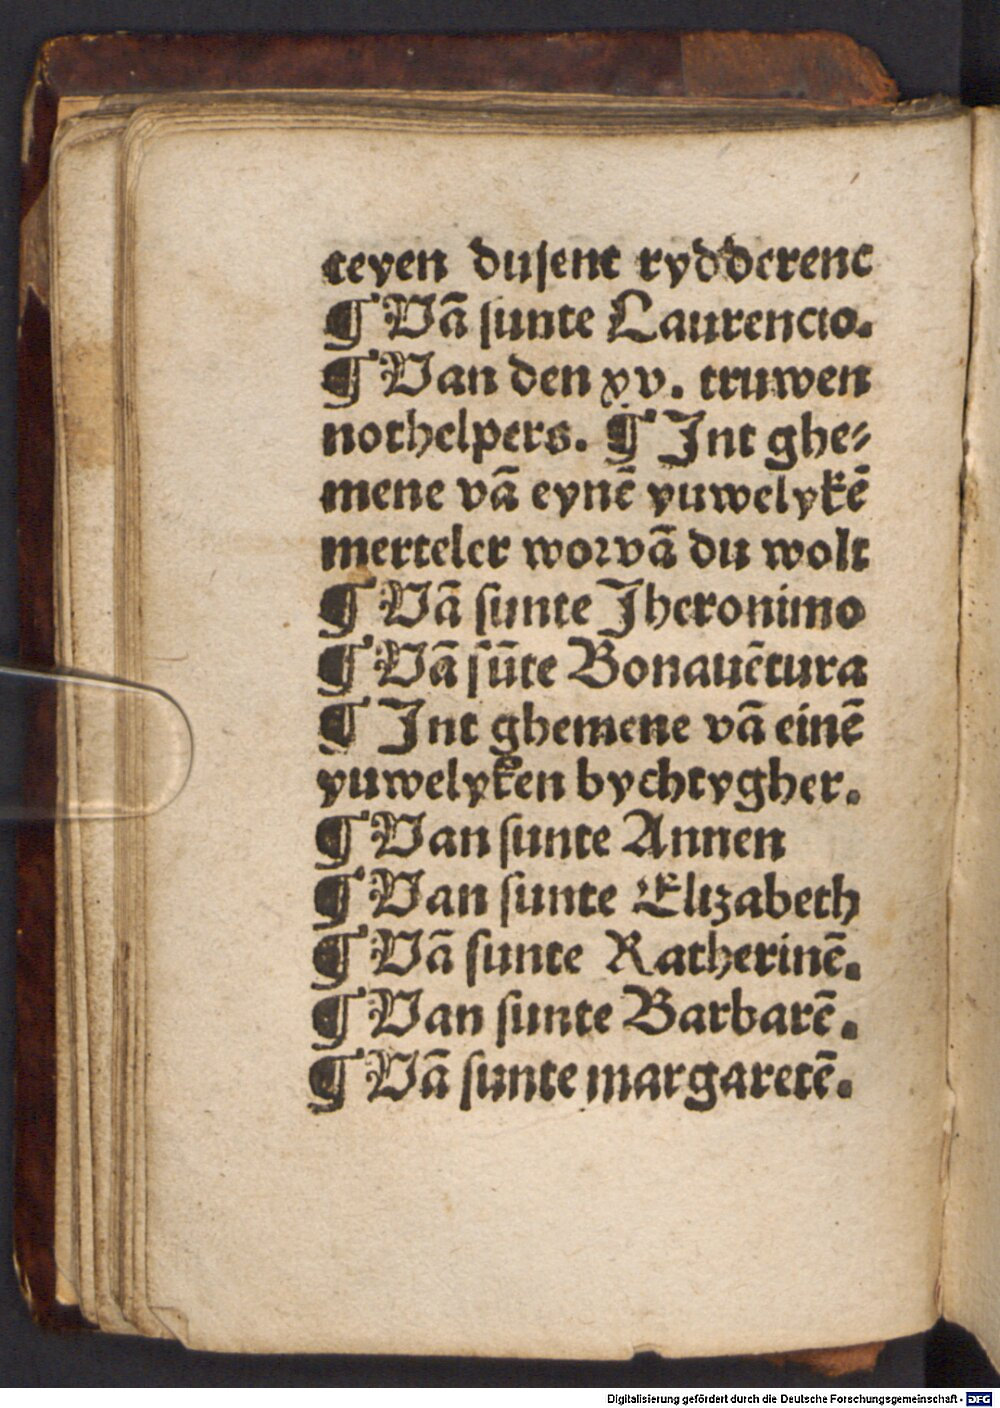 teyen dusent rydderenc
¶ Vā sunte Laurencio.
¶ Van den xv. truwen
nothelpers. ¶ Jnt ghe⸗
mene vā eynē yuwelykē
merteler worvā du wolt
¶ Vā sunte Jheronimo
¶ Vā sūte Bonauētura
¶ Jnt ghemene vā einē
yuwelyken bychtygher.
¶ Van sunte Annen
¶ Van sunte Elizabeth
¶ Vā sunte Katherinē.
¶ Van sunte Barbarē.
¶ Vā sunte margaretē.
Digitalisierung gefördert durch die Deutsche Forschungsgemeinschaft - DFG